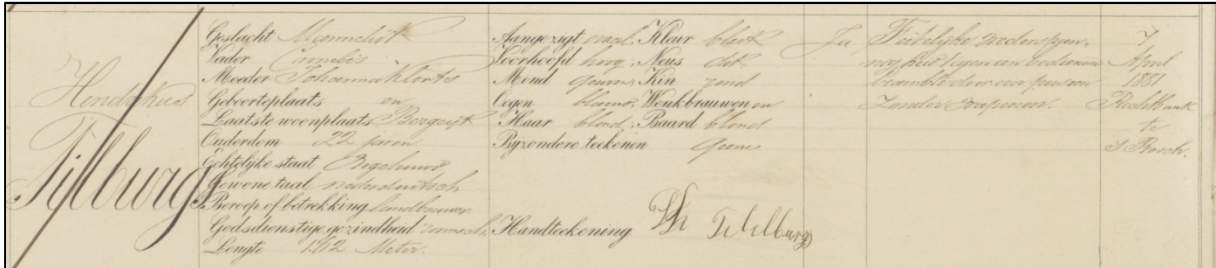 Hendrikus
Tilburgs
Geslacht Mannelijk
Vader Cornelis
Moeder Johanna Klerks
Geboorteplaats en
Laatste woonplaats
Ouderdom 22 jaren
Echtelyke staat Ongehuwd
Gewone taal nederduitsch
Beroep of betrekking landbouwer
Godsdienstige gezindheid roomsch
Lengte Meter.
Aangezigt ovaal. Kleur bleek
Voorhoofd hoog. Neus dik
Mond gewoon. Kin rond
Oogen blauw. Wenkbrauwen en
Haar blond. Baard blond
Byzondere teekenen geene
Handteekening Tilburgs
Ja
Feitelyke wederspan-
nigheid tegen een bediend
beambte door een persoon
Zonder wapenen.
7
April
1881
Rechtbank
te
s Bosch.